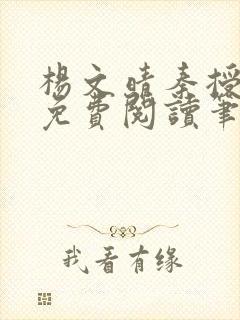 楊文晴秦授
免費閱讀筆
我看有缘